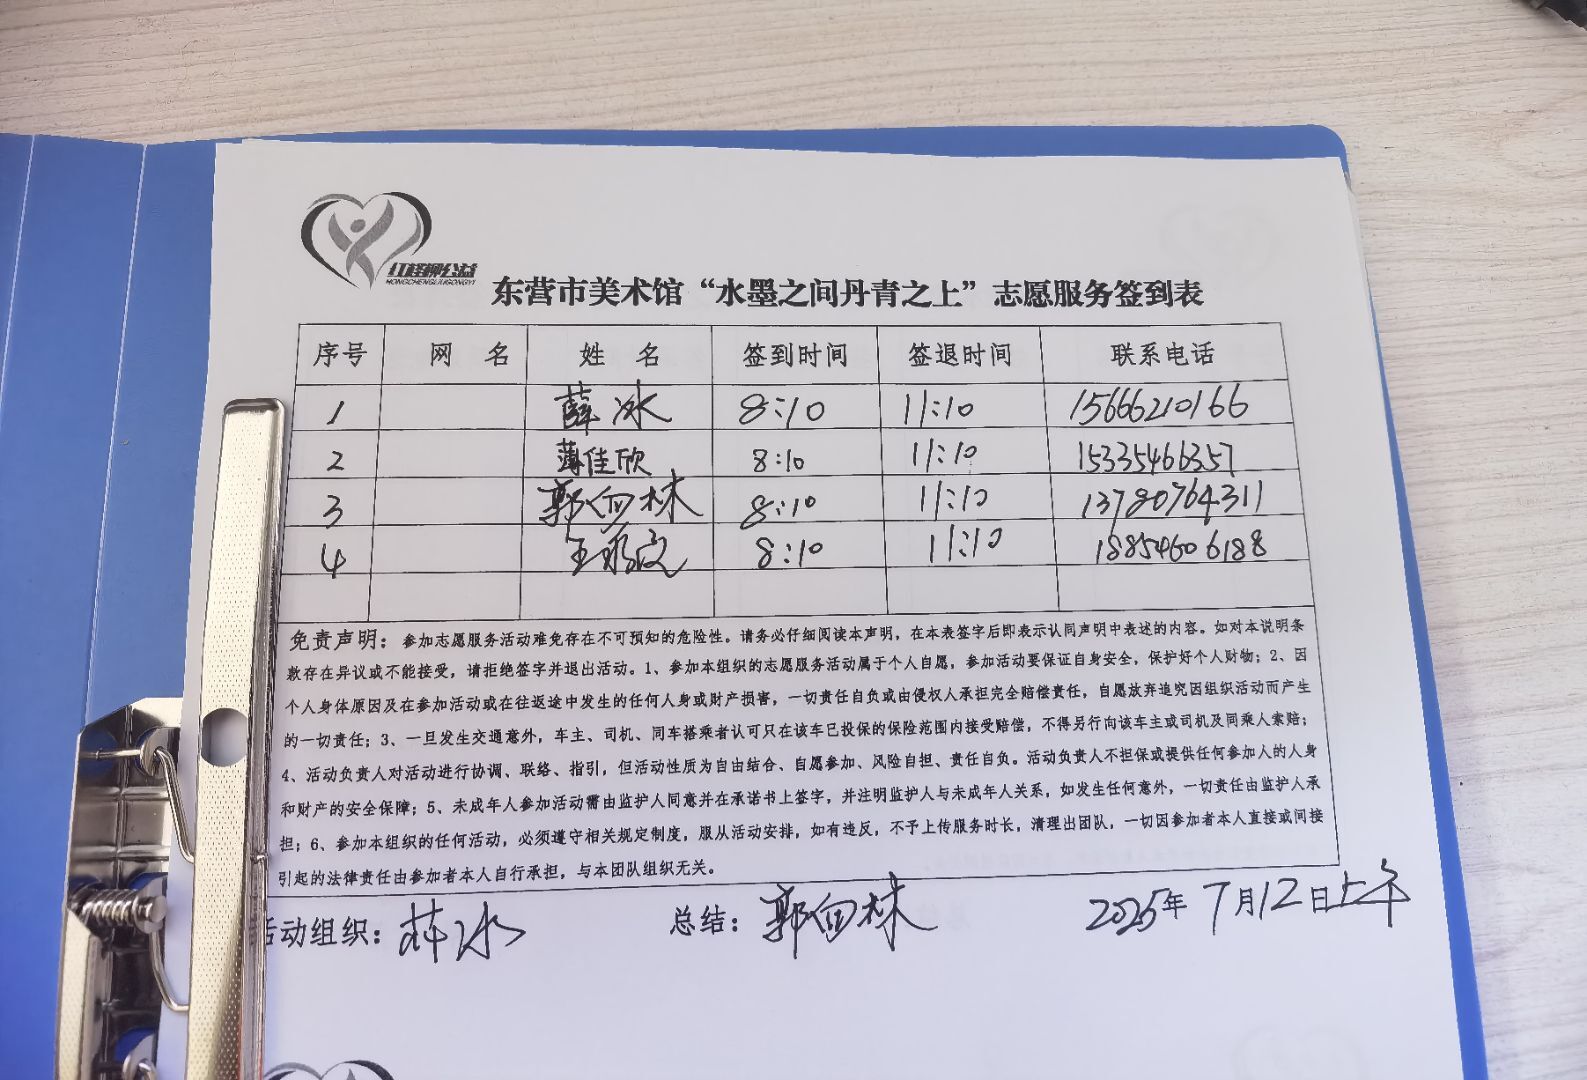 红柽柳公益
HONGCHENGLIUGONGYI
东营市美术馆“水墨之间丹青之上”志愿服务签到表
序号 网 名 姓 名 签到时间 签退时间 联系电话
1 薛冰 8:10 11:10 15666210166
2 薄佳欣 8:10 11:10 15335466357
3 郭向林 8:10 11:10 13780764311
4 8:10 11:10 18854606188
免责声明：参加志愿服务活动难免存在不可预知的危险性。请务必仔细阅读本声明，在本表签字后即表示认同声明中表述的内容。如对本说明条
款存在异议或不能接受，请拒绝签字并退出活动。1、参加本组织的志愿服务活动属于个人自愿，参加活动要保证自身安全，保护好个人财物；2、因
个人身体原因及在参加活动或在往返途中发生的任何人身或财产损害，一切责任自负或由侵权人承担完全赔偿责任，自愿放弃追究因组织活动而产生
的一切责任；3、一旦发生交通意外，车主、司机、同车搭乘者认可只在该车已投保的保险范围内接受赔偿，不得另行向该车主或司机及同乘人索赔；
4、活动负责人对活动进行协调、联络、指引，但活动性质为自由结合、自愿参加、风险自担、责任自负。活动负责人不担保或提供任何参加人的人身
和财产的安全保障；5、未成年人参加活动需由监护人同意并在承诺书上签字，并注明监护人与未成年人关系，如发生任何意外，一切责任由监护人承
担；6、参加本组织的任何活动，必须遵守相关规定制度，服从活动安排，如有违反，不予上传服务时长，清理出团队，一切因参加者本人直接或间接
引起的法律责任由参加者本人自行承担，与本团队组织无关。
活动组织：薛冰 总结：郭向林 2025年7月12日上午